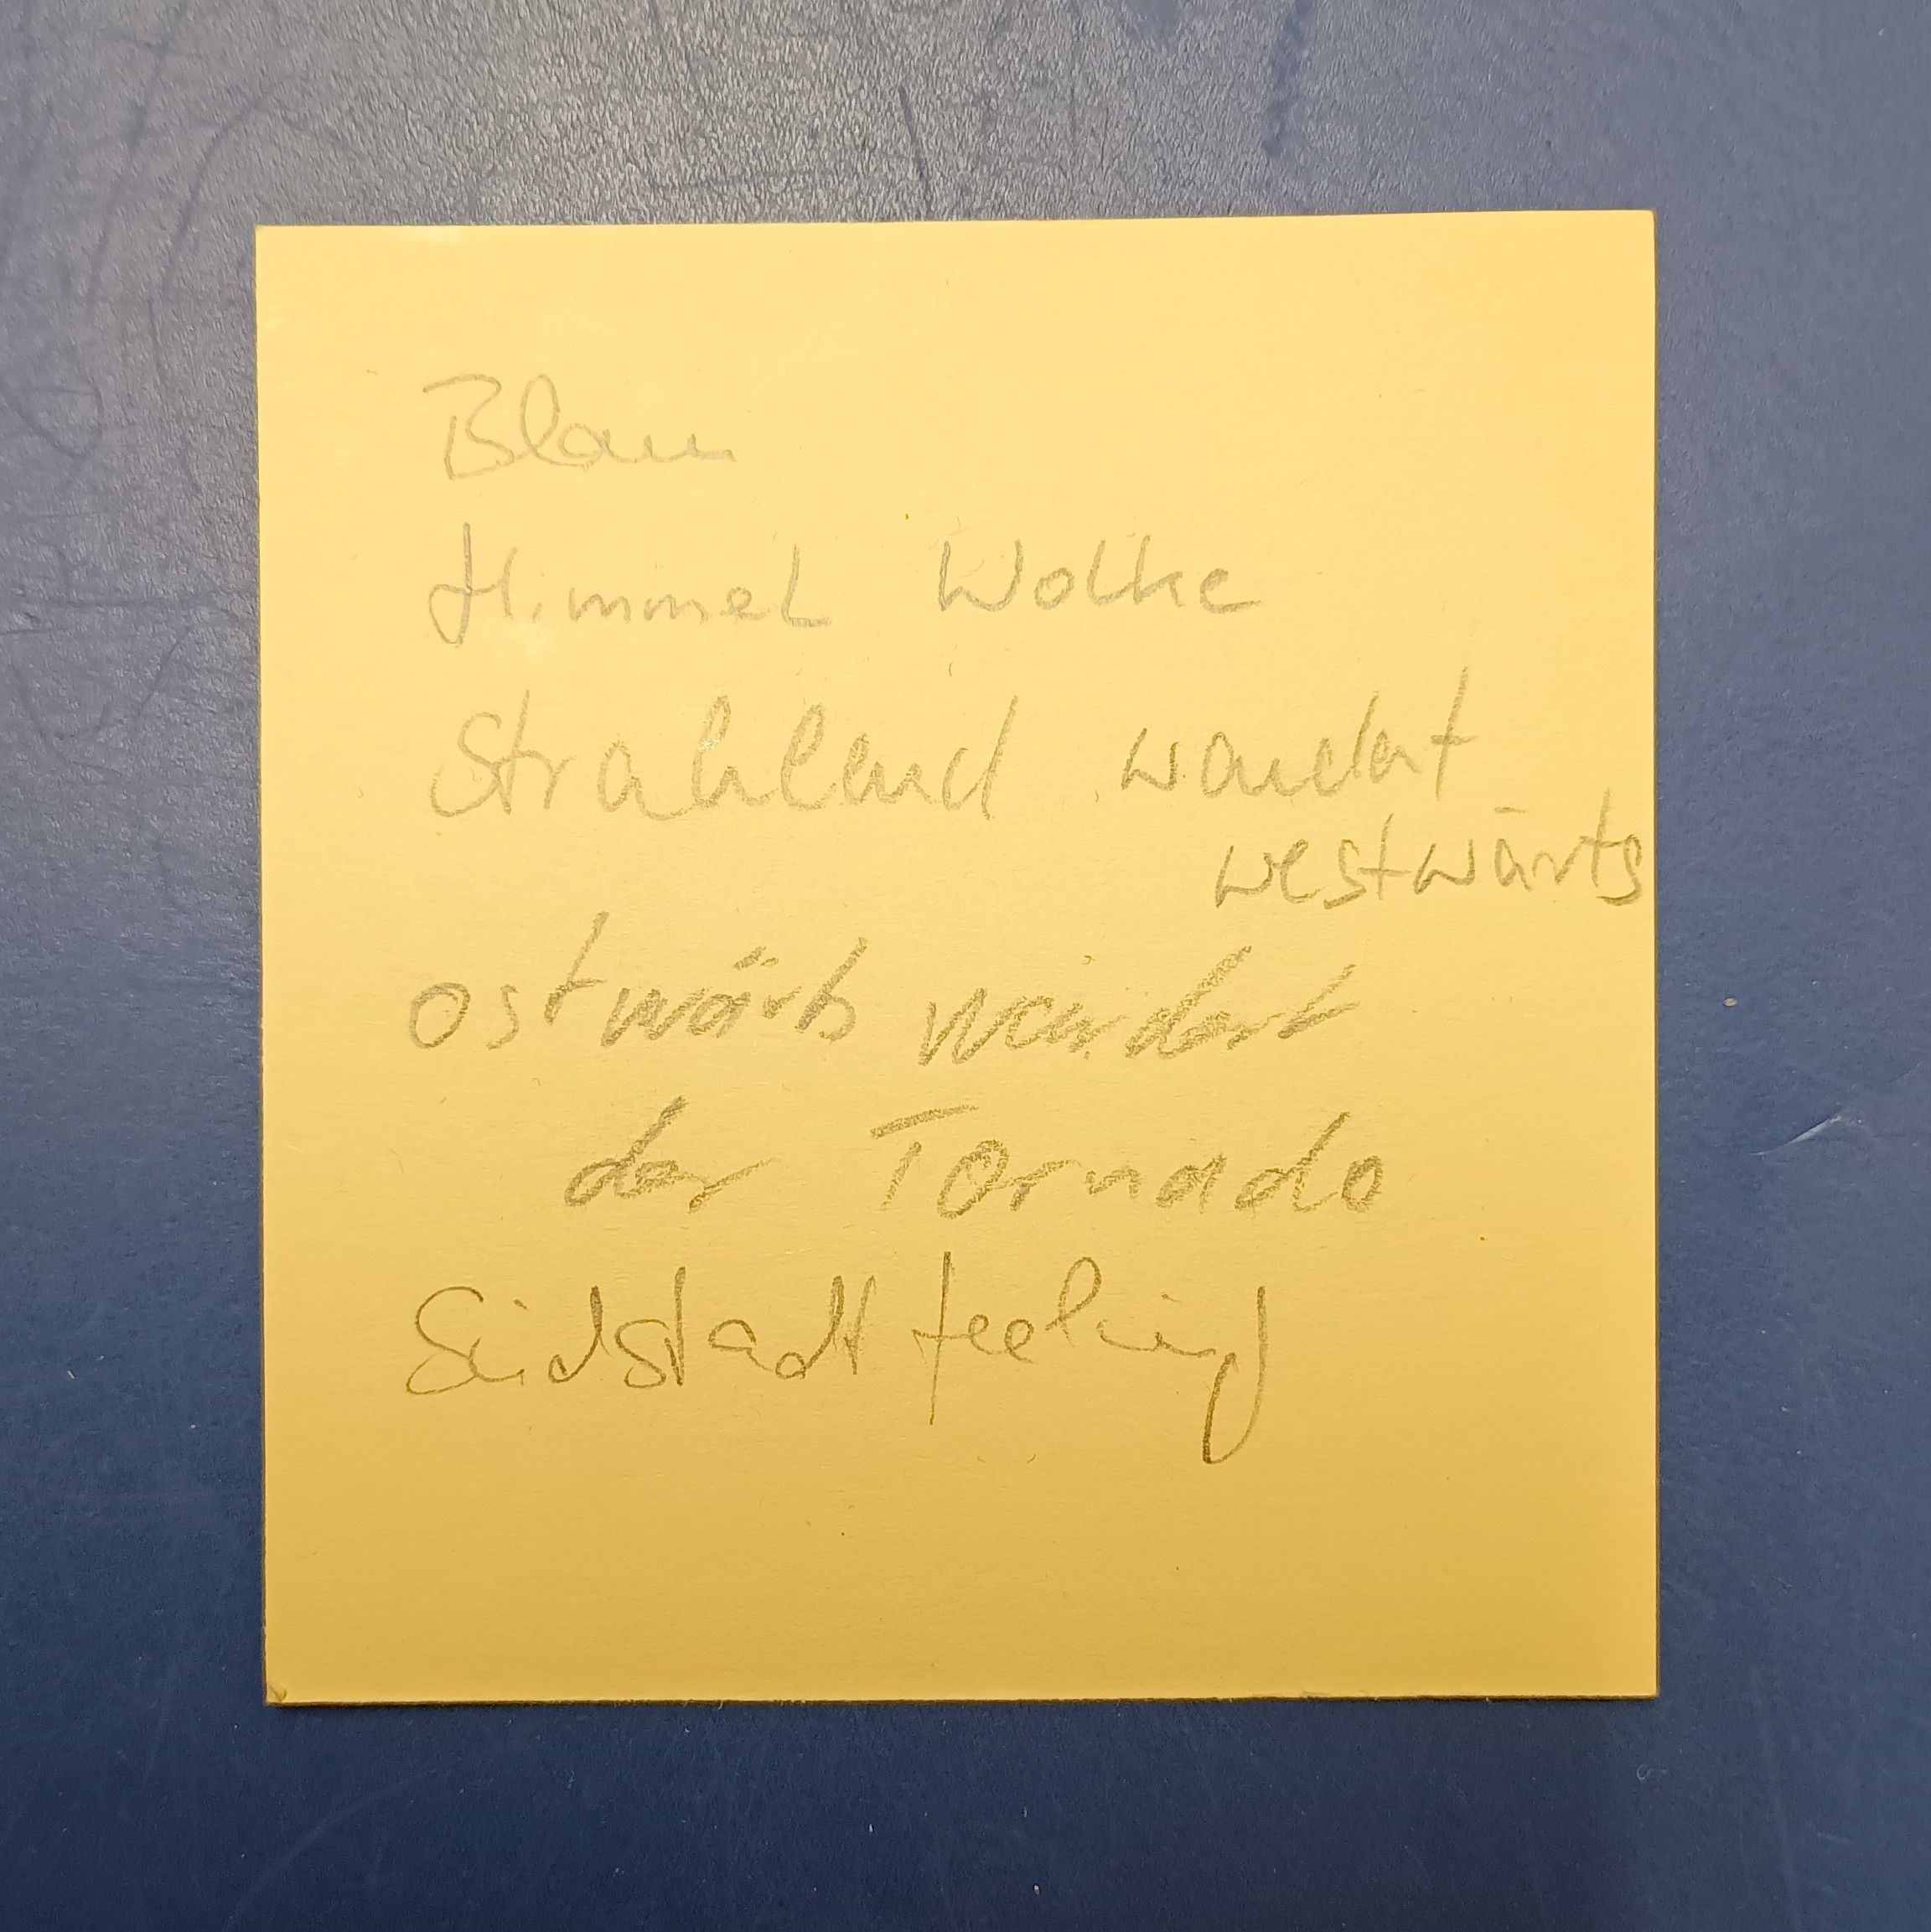 Blau
Himmel Wolke
Strahlend wandert
westwärts
ostwärts wandert
der Tornado
Südstadtfeeling